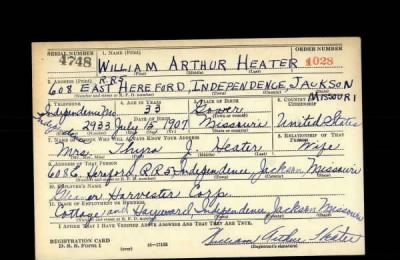 SERIAL NUMBER 1. NAME (Print) ORDER NUMBER
4748 WILLIAM ARTHUR HEATER 1028
(First) (Middle) (Last)
2. ADDRESS (Print) R.R.5
608 EAST HEREFORD, INDEPENDENCE, JACKSON MISSOURI
3. TELEPHONE 4. AGE IN YEARS 5. PLACE OF BIRTH 6. COUNTRY OF CITIZENSHIP
Independence Mo. 33
2933 July 1907 Missouri United States
7. NAME OF PERSON WHO WILL ALWAYS KNOW YOUR ADDRESS 8. RELATIONSHIP OF THAT PERSON
Mrs. Thyra J. Heater Wife
9. ADDRESS OF THAT PERSON
608 E. Hereford, R.R.5 Independence, Jackson, Missouri
10. EMPLOYER'S NAME
Harvester Corp.
11. PLACE OF EMPLOYMENT OR BUSINESS
Cottage and Hayward, Independence Jackson Missouri
I AFFIRM THAT I HAVE VERIFIED ABOVE ANSWERS AND THAT THEY ARE TRUE.
REGISTRATION CARD
D. S. S. Form 1 William Arthur Heater
(over) (Registrant's signature)